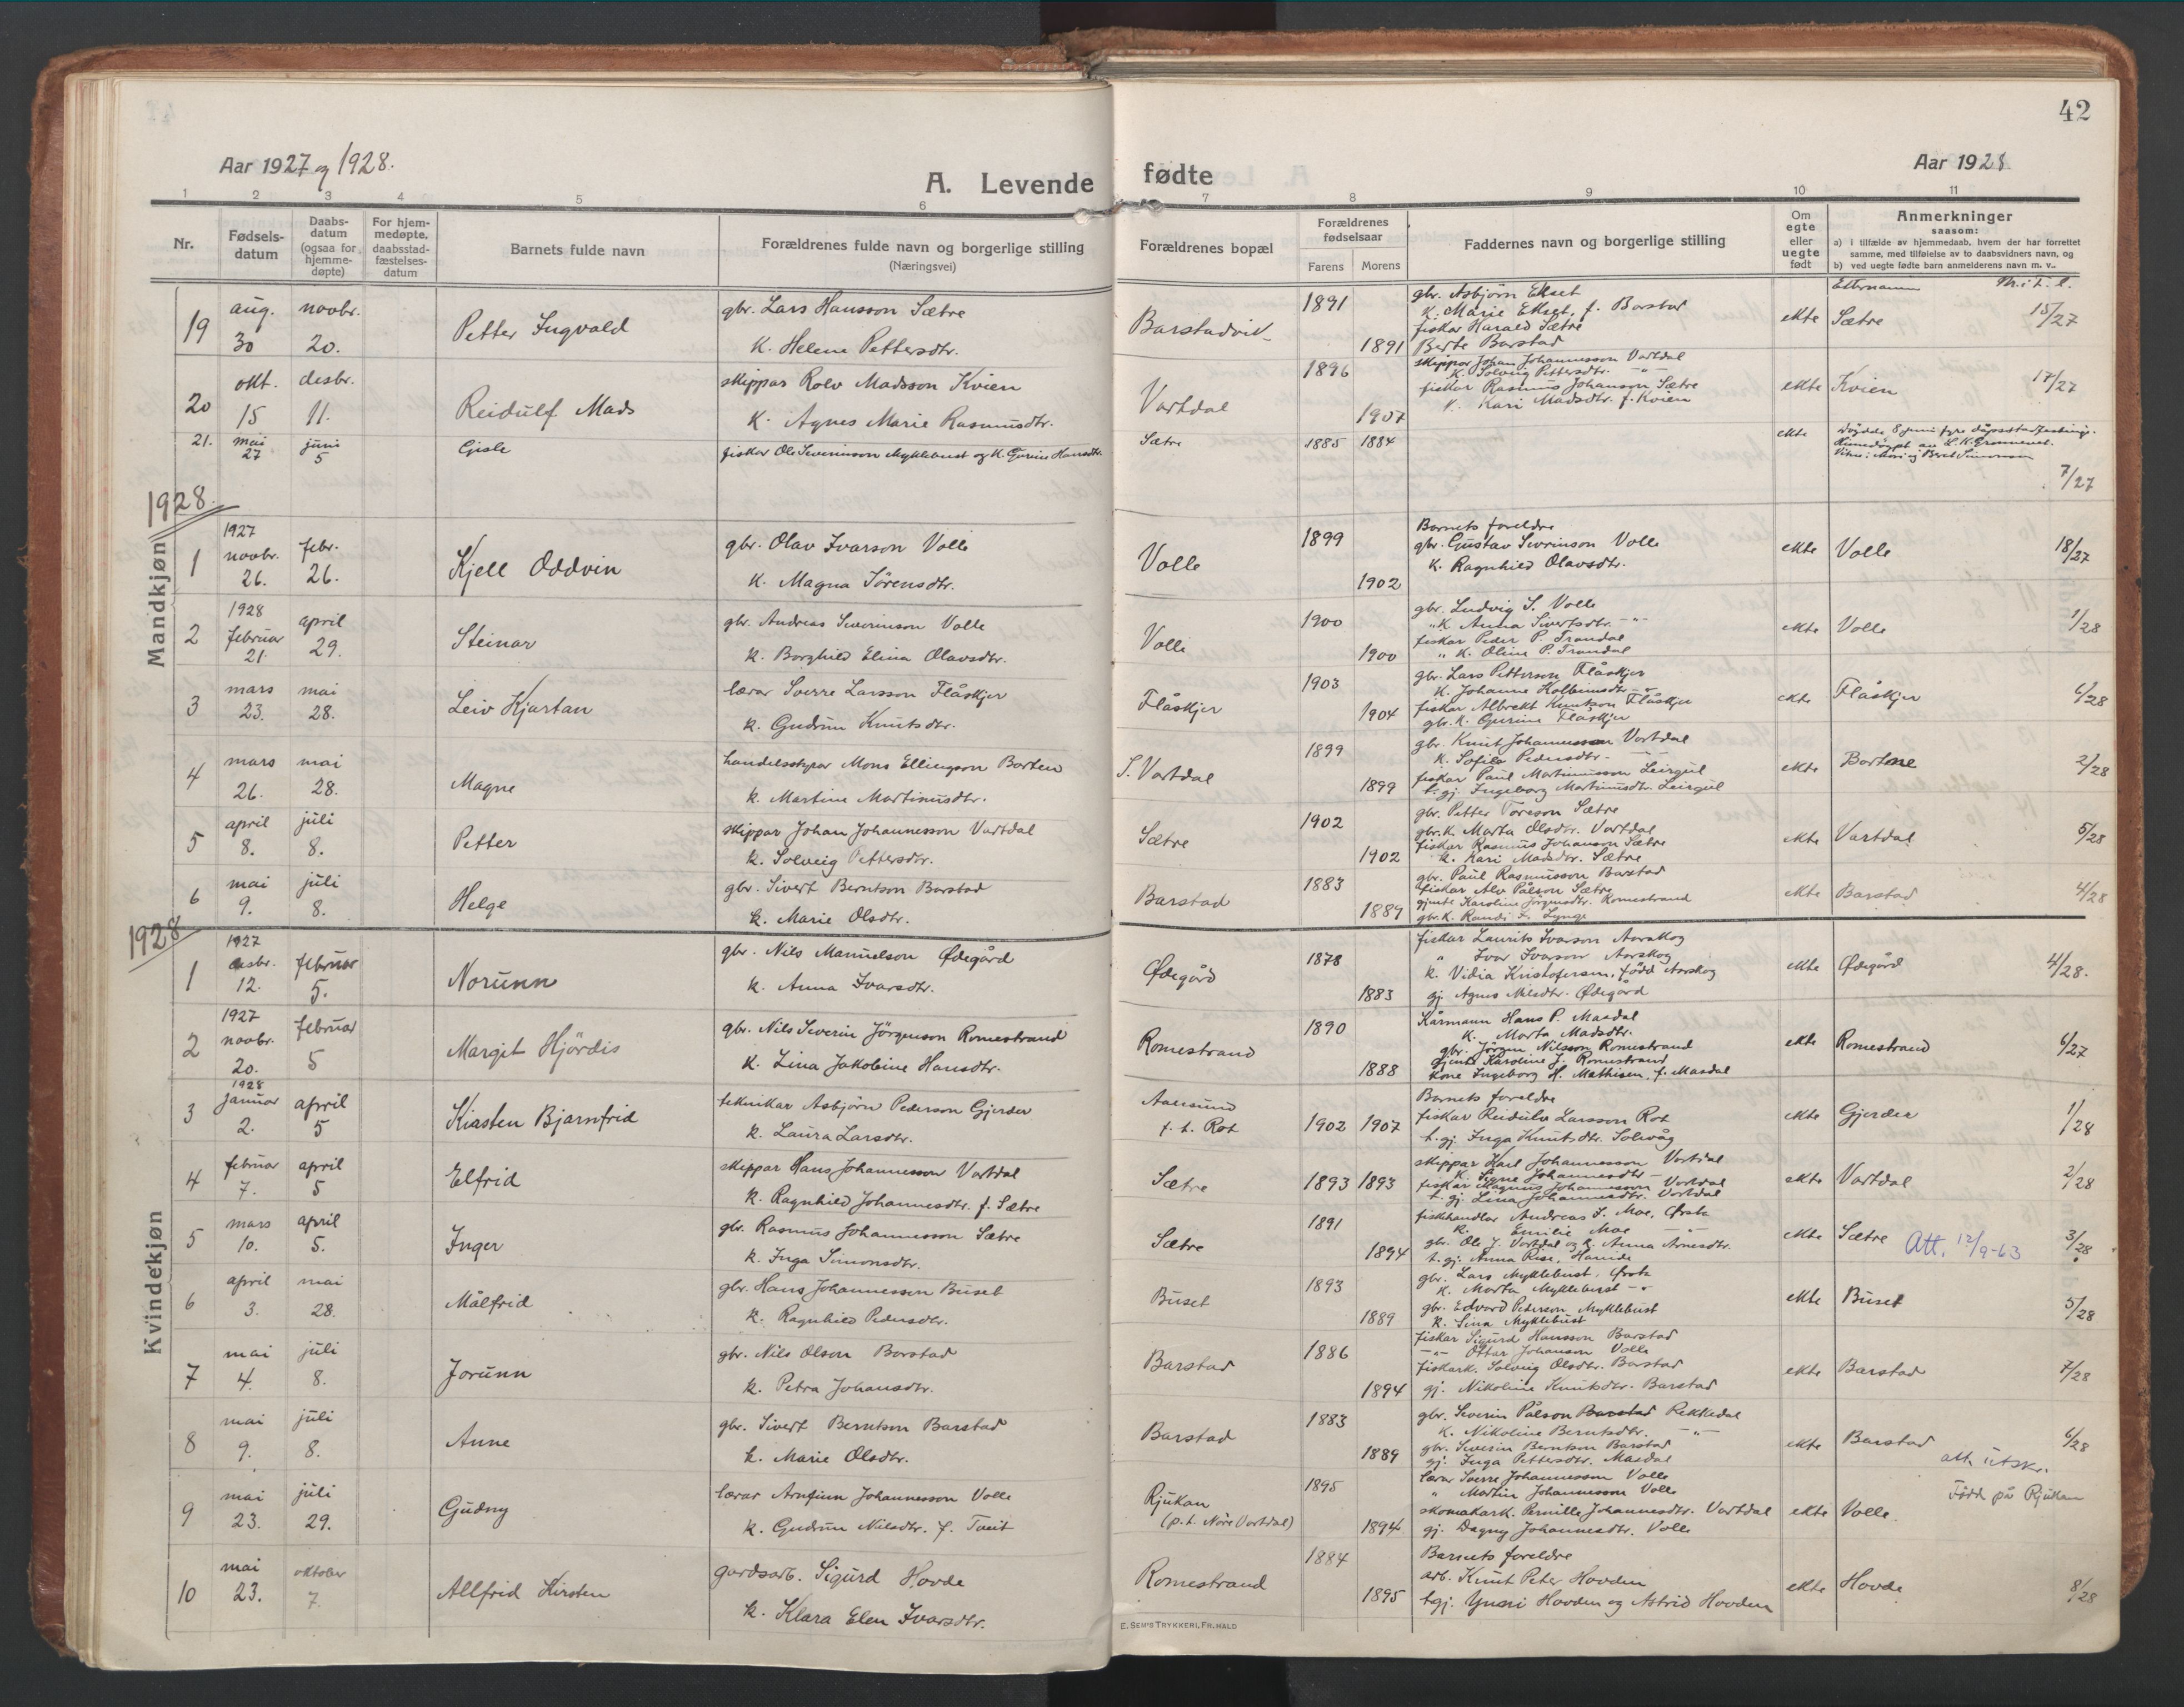 42
Aar 1927 og 1928.
A. Levende fødte
Aar 1928
1 2 3 4 5 6 7 8 9 10 11
Nr.
Fødsels-datum
Daabs-datum (ogsaa for hjemme-døpte)
For hjem-medøpte, daabsstad-fæstelses-datum
Barnets fulde navn
Forældrenes fulde navn og borgerlige stilling
(Næringsvei)
Forældrenes bopæl
Forældrenes fødselsaar
Farens Morens
Faddernes navn og borgerlige stilling
Om egte eller uegte født
Anmerkninger
saasom:
a) i tilfælde av hjemmedaab, hvem der har forrettet
samme, med tilføielse av to daabsvidners navn, og
b) ved uegte fødte barn anmelderens navn m. v..
Etternamn M.i.t.l.
19 aug. 30 novbr. 20. Petter Ingvald
gbr. Lars Hansson Sætre
K. Helene Pettersdtr.
Barstadvik 1891 1891
gbr. Asbjørn Ekset
K. Marie Ekset, f. Barstad
fiskar Harald Sætre
Berte Barstad
ekte Sætre 15/27
20 okt. 15 desbr. 11. Reidulf Mads
skippar Rolv Madsson Kvien
K. Agnes Marie Rasmusdtr.
Vartdal 1896 1907
skippar Johan Johannesson Vartdal
K. Solveig Pettersdtr. -"-
fiskar Rasmus Johanson Sætre
K. Kari Madsdtr. f. Kvien
ekte Kvien 17/27
21. mai 27 juni 5 Gisle
fiskar Ole Severinson Myklebust og K. Gurine Hansdtr.
Sætre 1885 1884 ekte
Døydde 8 juni fyre dåpsstadfesting.
Heimedøypt av
7/27
1928.
Mandkjøn
1 1927 novbr. 26. febr. 26. Kjell Oddvin
gbr. Olav Ivarson Volle
K. Magna Sørensdtr.
Volle 1899 1902
Barnets foreldre
gbr. Gustav Severinson Volle
K. Ragnhild Olavsdtr.
ekte Volle 18/27
2 1928 februar 21. april 29. Steinar
gbr. Andreas Severinson Volle
K. Borghild Elina Olavsdtr.
Volle 1900 1900
gbr. Ludvig S. Volle
" K. Anna Sivertsdtr. -"-
fiskar Peder P. Trandal
" K. Oline P. Trandal
ekte Volle 1/28
3 mars 23. mai 28. Leiv Kjartan
lærar Sverre Larsson Flåskjer
K. Gudrun Knutsdtr.
Flåskjer 1903 1904
gbr. Lars Petterson Flåskjer
K. Johanne Kolbeinsdtr. -"-
fiskar Albrekt Knutson Flåskjer
gbr. K. Gurine Flåskjer
ekte Flåskjer 6/28
4 mars 26. mai 28. Magne
handelsstyrar Mons Ellingson Barten
K. Martine Martinusdtr.
S. Vartdal 1899 1899
gbr. Knut Johannesson Vartdal
K. Sofile Pedersdtr. -"-
fiskar Paul Martinusson Leirgul
t. gj. Ingeborg Martinusdtr. Leirgul
ekte Bartene 2/28
5 april 8. juli 8. Petter
skippar Johan Johannesson Vartdal
K. Solveig Pettersdtr.
Sætre 1902 1902
gbr. Petter Toreson Sætre
gbr. K. Marta Olsdtr. Vartdal
fiskar Rasmus Johanson Sætre
K. Kari Madsdtr. Sætre
ekte Vartdal 5/28
6 mai 9. juli 8. Helge
gbr. Sivert Berntson Barstad
K. Marie Olsdtr.
Barstad 1883 1889
gbr. Paul Rasmusson Barstad
fiskar Alv Pålson Sætre
gjente Karoline Jörgensdtr. Romestrand
gbr. K. Randi F. Lynge
ekte Barstad 4/28
1928
Kvindekjøn
1 1927 desbr. 12. februar 5. Norunn
gbr. Nils Manuelson Ødegård
K. Anna Ivarsdtr.
Ødegård 1878 1883
fiskar Laurits Ivarson Aarskog
" Ivar Ivarson Aarskog
K. Vidia Kristofersen, fødd Aarskog
gj. Agnes Nilsdtr. Ødegård
ekte Ødegård 4/28.
2 1927 novbr. 20. februar 5 Margit Hjördis
gbr. Nils Severin Jörgenson Romestrand
K. Lina Jakobine Hansdtr.
Romestrand 1890 1888
Kårmann Hans P. Masdal
K. Marta Madsdtr.
gbr. Jörgen Nilsson Romestrand
gjente Karoline J. Romestrand
kone Ingeborg H. Mathisen, f. Masdal
ekte Romestrand 6/27
3 1928 januar 2. april 5 Kirsten Bjarnfrid
teknikar Asbjörn Pederson Gjerder
K. Laura Larsdtr.
Aalesund
f. t. Rot 1902 1907
Barnets foreldre
fiskar Reidulv Larsson Rot
t. gj. Inga Knutsdtr. Solevåg
ekte Gjerder 1/28
4 februar 7. april 5 Elfrid
skippar Hans Johannesson Vartdal
K. Ragnhild Johannesdtr. f. Sætre
Sætre 1893 1893
skippar Karl Johannesson Vartdal
K. Signe Johannesdtr. -"-
fiskar Magnus Johannesson Vartdal
t. gj. Lina Johannesdtr. Vartdal
ekte Vartdal 2/28
5 mars 10. april 5. Inger
gbr. Rasmus Johannesson Sætre
K. Inga Simonsdtr.
Sætre 1891 1894
fiskehandlar Andreas J. Moe, Ørsta
K. Emilie Moe -"-
gbr. Ole J. Vartdal og K. Anna Arnesdtr.
t. gj. Anna Rise, Hareide
ekte Sætre Att. 12/9-63 3/28
6 april 3. mai 28. Målfrid
gbr. Hans Johannesson Buset
K. Ragnhild Pedersdtr.
Buset 1893 1889
gbr. Lars Myklebust, Ørsta
K. Marta Myklebust -"-
gbr. Edvard Pederson Myklebust
K. Lina Myklebust
ekte Buset 5/28
7 mai 4. juli 8. Jorunn
gbr. Nils Olson Barstad
K. Petra Johansdtr.
Barstad 1886 1894
fiskar Sigurd Hansson Barstad
-"- Ottar Johanson Volle
fiskark. Solveig Olsdtr. Barstad
gj. Nikoline Knutsdtr. Barstad
ekte Barstad 7/28
8 mai 9. juli 8. Anne
gbr. Sivert Berntson Barstad
K. Marie Olsdtr.
Barstad 1883 1889
gbr. Severin Pålson Barstad Rekkedal
K. Nikoline Berntsdtr. -"-
gbr. Severin Berntson Barstad
gj. Inga Pettersdtr. Masdal
ekte Barstad 6/28
att. utskr.
9 mai 23. juli 29. Gudny
lærar Arnfinn Johannesson Volle
K. Gudrun Nilsdtr. f. Tveit
Rjukan
(p.t. Nore Vartdal) 1895 1894
lærar Sverre Johannesson Volle
" Martin Johannesson Volle
skomakark. Pernille Johannesdtr. Vartdal
gj. Dagny Johannesdtr. Volle
ekte Volle.
Född på Rjukan
10 mai 23. oktober 7. Allfrid Kirsten
gardsarb. Sigurd Hovde
K. Klara Elen Ivarsdtr.
Romestrand 1884 1895
Barnets foreldre
arb. Knut Peter Hovden
t.gj. Yngri Hovden og Astrid Hovden
ekte Hovde 8/28
E. SEM'S TRYKKERI, FR. HALD